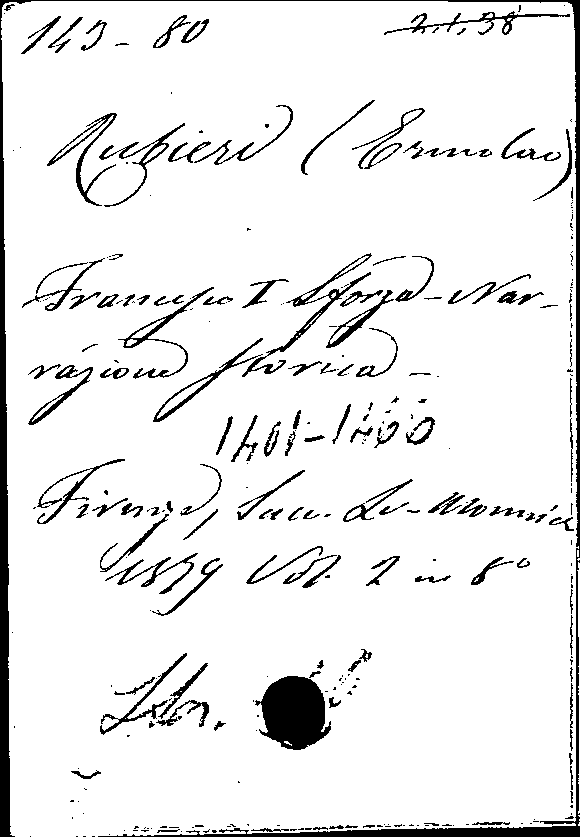 143-80 2.1.38
Rubieri (Ermolao)
Francesco I Sforza - Nar-
razione storica -
1401-1466
Firenze, Succ. Le-Monnier
1879 Vol. 2 in 8º